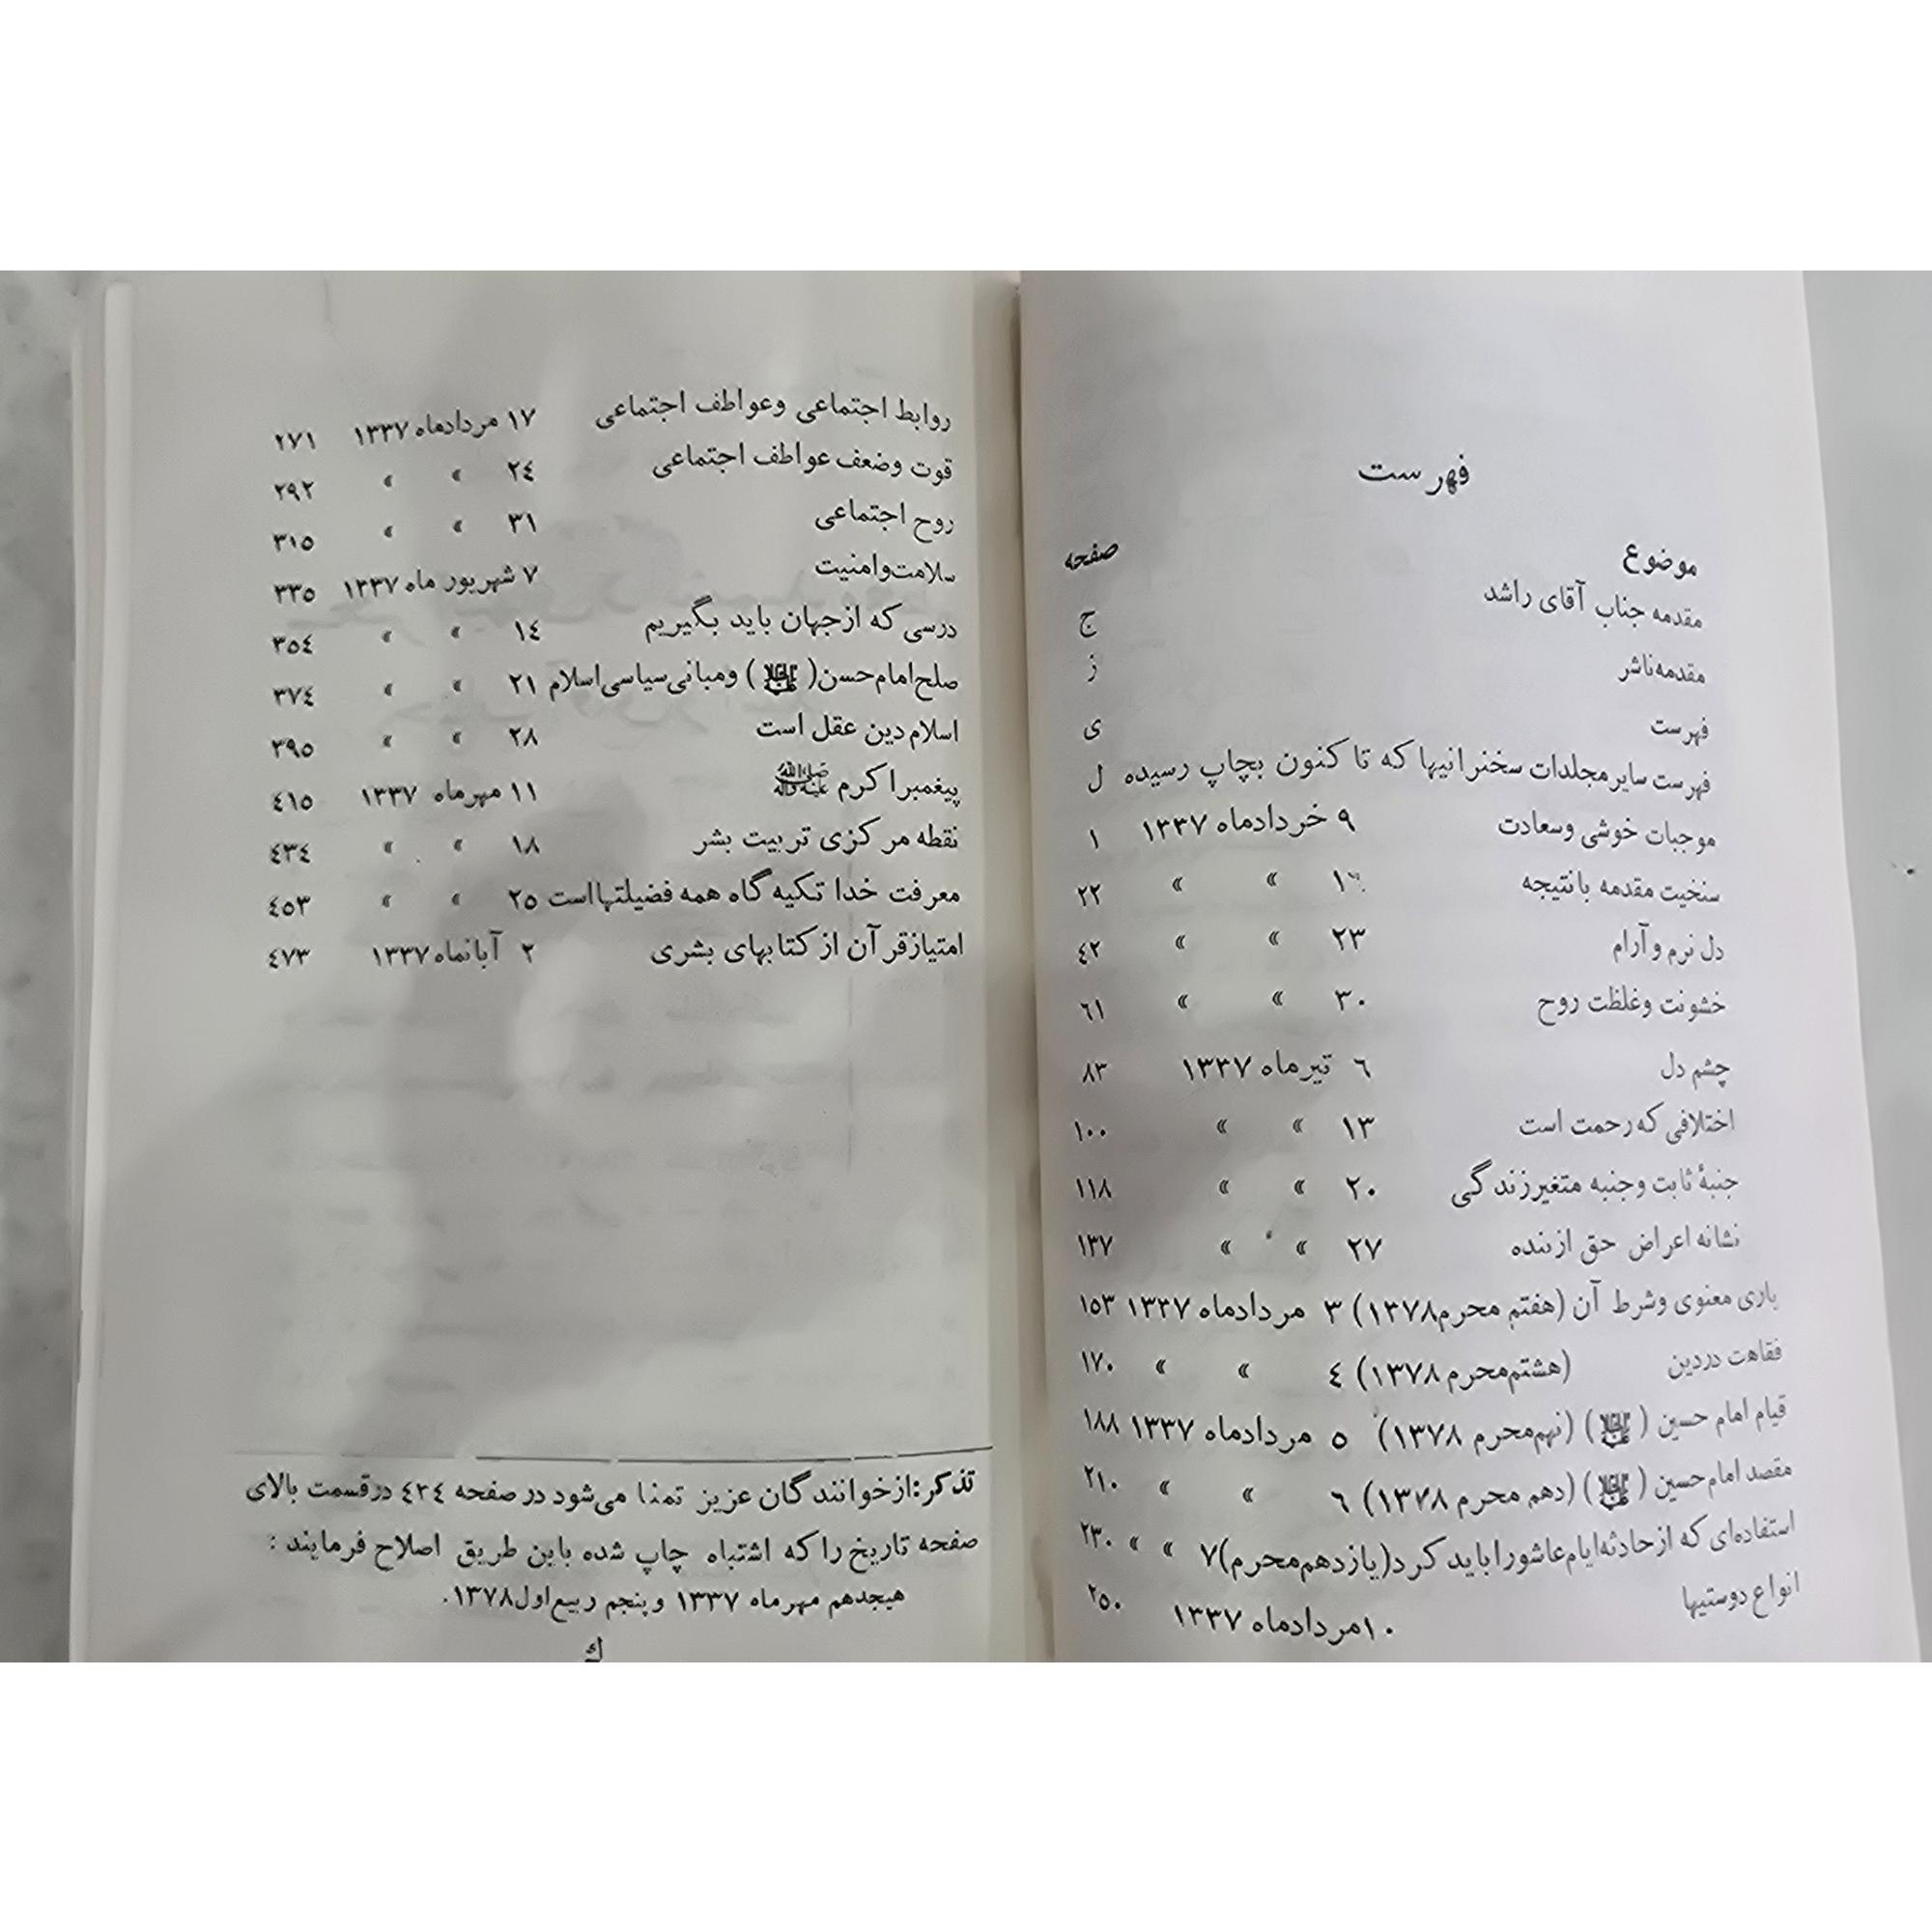 فهرست
موضوع صفحه
مقدمه جناب آقای راشد ج
مقدمه ناشر ز
فهرست ی
فهرست سایر مجلدات سخنرانیها که تا کنون بچاپ رسیده ل
موجبات خوشی وسعادت ۹ خردادماه ۱۳۳۷ ۱
سنخیت مقدمه با نتیجه ۱۶ » » ۲۲
دل نرم و آرام ۲۳ » » ٤۲
خشونت وغلظت روح ۳۰ » » ٦۱
چشم دل ٦ تیرماه ۱۳۳۷ ۸۳
اختلافی که رحمت است ۱۳ » » ۱۰۰
جنبهٔ ثابت و جنبه متغیر زندگی ۲۰ » » ۱۱۸
نشانه اعراض حق از بنده ۲۷ » » ۱۳۷
یاری معنوی وشرط آن (هفتم محرم ۱۳۷۸) ۳ مردادماه ۱۳۳۷ ۱۵۳
فقاهت دردین (هشتم محرم ۱۳۷۸) ٤ » » ۱۷۰
قیام امام حسین (علیه‌السلام) (نهم محرم ۱۳۷۸) ۵ مردادماه ۱۳۳۷ ۱۸۸
مقصد امام حسین (علیه‌السلام) (دهم محرم ۱۳۷۸) ٦ » » ۲۱۰
استفاده‌ای که از حادثه ایام عاشورا باید کرد (یازدهم محرم) ۷ » » ۲۳۰
انواع دوستیها ۱۰ مردادماه ۱۳۳۷ ۲۵۰
روابط اجتماعی وعواطف اجتماعی ۱۷ مردادماه ۱۳۳۷ ۲۷۱
قوت وضعف عواطف اجتماعی ۲٤ » » ۲۹۲
روح اجتماعی ۳۱ » » ۳۱۵
سلامت وامنیت ۷ شهریور ماه ۱۳۳۷ ۳۳۵
درسی که از جهان باید بگیریم ۱٤ » » ۳۵٤
صلح امام حسن (علیه‌السلام) ومبانی سیاسی اسلام ۲۱ » » ۳۷٤
اسلام دین عقل است ۲۸ » » ۳۹۵
پیغمبر اکرم ﷺ ۱۱ مهرماه ۱۳۳۷ ٤۱۵
نقطه مرکزی تربیت بشر ۱۸ » » ٤۳٤
معرفت خدا تکیه گاه همه فضیلتها است ۲۵ » » ٤۵۳
امتیاز قرآن از کتابهای بشری ۲ آبانماه ۱۳۳۷ ٤۷۳
تذکر: از خوانندگان عزیز تمنا می‌شود در صفحه ٤۳٤ در قسمت بالای
صفحه تاریخ را که اشتباه چاپ شده باین طریق اصلاح فرمایند :
هیجدهم مهرماه ۱۳۳۷ و پنجم ربیع اول ۱۳۷۸.
ك